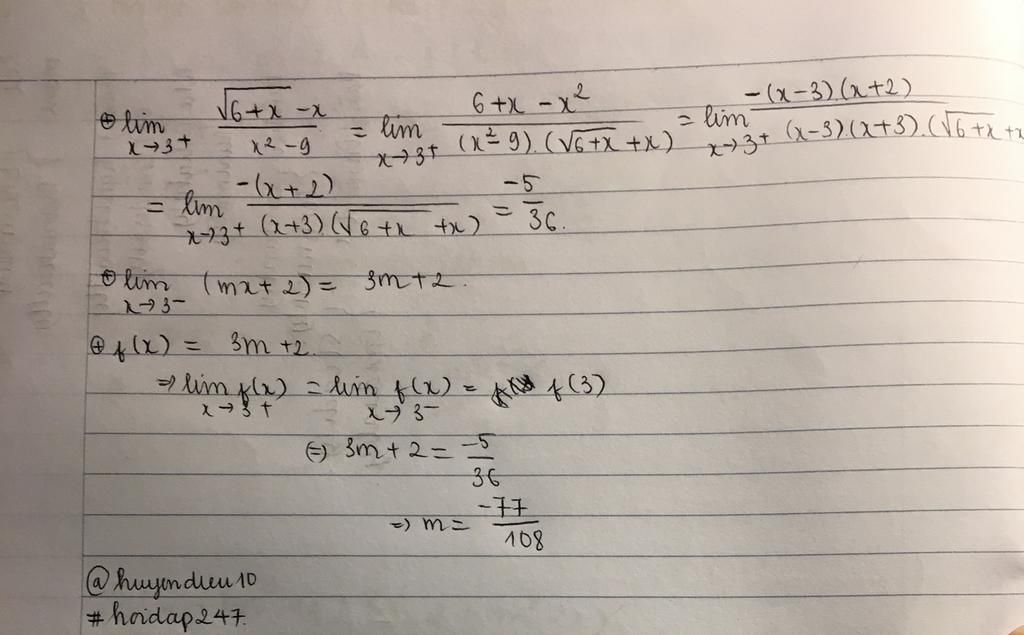 ⊕ lim x→3+ (√(6+x) - x)/(x² - 9) = lim x→3+ (6+x - x²)/((x² - 9).(√(6+x) + x)) = lim x→3+ (-(x-3).(x+2))/((x-3).(x+3).(√(6+x) + x
= lim x→3+ (-(x+2))/((x+3)(√(6+x) + x)) = -5/36.
⊕ lim x→3- (mx + 2) = 3m + 2.
⊕ f(x) = 3m + 2.
⇒ lim x→3+ f(x) = lim x→3- f(x) = f(3)
⇔ 3m + 2 = -5/36
⇒ m = -77/108
@huyendieu10
#hoidap247.